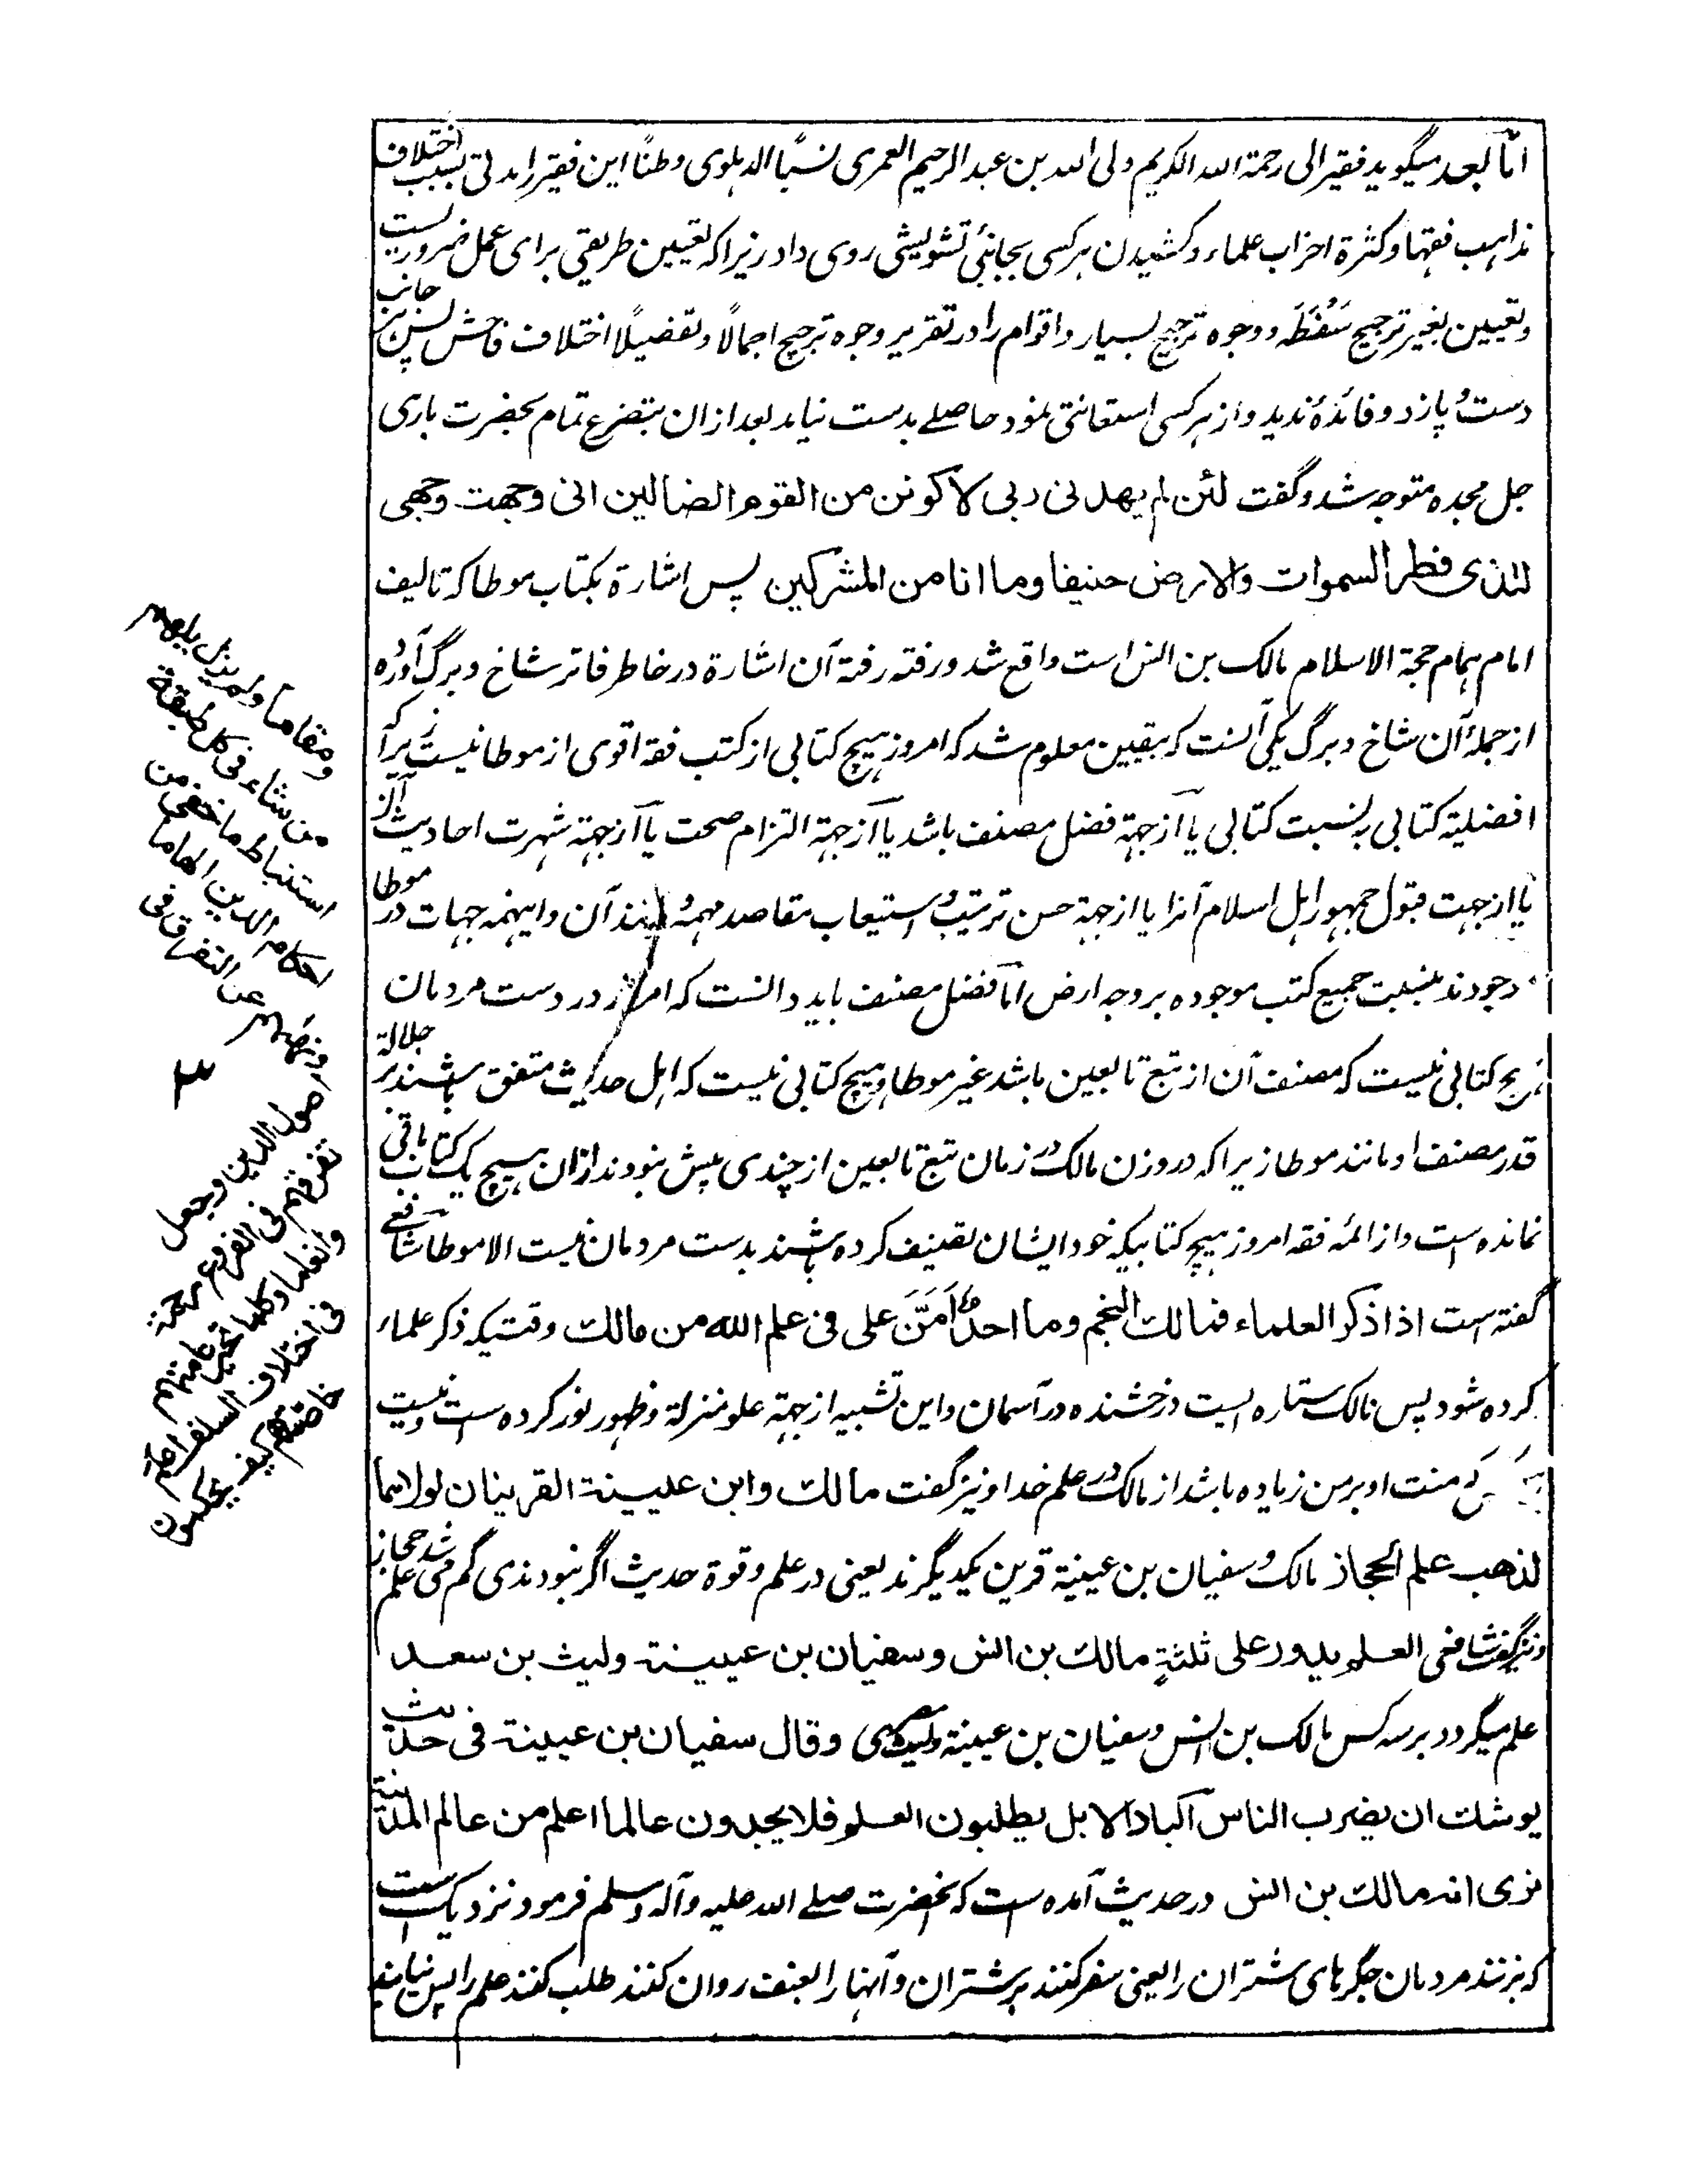 امّا بعد میگوید فقیر الی رحمة الله الکریم ولی الله بن عبد الرحیم العمری نسبًا الدہلوی وطنًا این فقیر را مدتی بسبب اختلاف
مذاہب فقہا و کثرة احزاب علماء و کشیدن ہر کسی بجانبی تشویشی روی داد زیرا کہ تعیین طریقی برای عمل ضروریست
و تعیین بغیر ترجیح سَفْسَطَہ و وجوہ ترجیح بسیار و اقوام را در تقریر وجوہ ترجیح اجمالًا و تفضیلًا اختلاف فاحش پس بہر جانب
دست و پا زد و فائدۂ ندید و از ہر کسی استعانتی نمود حاصلے بدست نیامد بعد ازان بتضرع تمام بحضرت باری
جل مجدہ متوجہ شد و گفت لئن لم یهدنی ربی لاکونن من القوم الضالین انی وجهت وجهی
للذی فطر السموات والارض حنیفا وما انا من المشرکین پس اشارة بکتاب موطا کہ تالیف
امام ہمام حجة الاسلام مالک بن انس است واقع شد و رفتہ رفتہ آن اشارة در خاطر فاتر شاخ و برگ آوردہ
از جملۂ آن شاخ و برگ یکی آنست کہ بیقین معلوم شد کہ امروز ہیچ کتابی از کتب فقہ اقوی از موطا نیست زیرا کہ
افضلیة کتابی بہ نسبت کتابی یا از جہة فضل مصنف باشد یا از جہة التزام صحت یا از جہة شہرت احادیث آن
یا از جہت قبول جمہور اہل اسلام آنرا یا از جہة حسن ترتیب و استیعاب مقاصد مہمہ و مانند آن و اینہمہ جہات در موطا
موجودند بنسبت جمیع کتب موجودہ بر وجہ ارض امّا فضل مصنف باید دانست کہ امروز در دست مردمان
ہیچ کتابی نیست کہ مصنف آن از تبع تابعین باشد غیر موطا و ہیچ کتابی نیست کہ اہل حدیث متفق باشند بر جلالة
قدر مصنف او مانند موطا زیرا کہ در وزن مالک در زمان تبع تابعین از چندی بیش نبودند ازان ہیچ یک کتاب باقی
نماندہ است و از ائمہ فقہ امروز ہیچ کتابیکہ خود ایشان تصنیف کردہ باشند بدست مردمان نیست الا موطا شافعی
گفتہ است اذا ذکر العلماء فمالك النجم وما احدٌ اَمَنَّ علی فی علم الله من مالك وقتیکہ ذکر علماء
کردہ شود پس مالک ستارہ ایست درخشندہ در آسمان و این تشبیہ از جہة علو منزلة و ظہور نور کردہ است و نیست
منت او بر من زیادہ باشد از مالک در علم خدا و نیز گفت مالك وابن عیینة القرینان لولاهما
لذهب علم الحجاز مالک و سفیان بن عیینہ قرین یکدیگرند یعنی در علم و قوة حدیث اگر نبودندی گم می شد علم حجاز
و نیز گفت شافعی العلم یدور علی ثلثةٍ مالك بن انس وسفیان بن عیینة ولیث بن سعد
علم میگردد بر سہ کس مالک بن انس و سفیان بن عیینہ و لیث مصری وقال سفیان بن عیینة فی حدیث
یوشك ان یضرب الناس اکباد الابل یطلبون العلم فلا یجدون عالما اعلم من عالم المدینة
نری انه مالك بن انس در حدیث آمدہ است کہ آنحضرت صلے اللہ علیہ وآلہ وسلم فرمود نزدیک است
کہ بزنند مردمان جگرہای شتران را یعنی سفر کنند بر شتران و آنہا را بعنف روان کنند طلب کنند علم را پس نیابند
ومقاما ولم یزل یلهم
من شاء فی کل طبقة
استنباط ما خفی من
احکام الدین الهاما
ونهاهم عن التفرق فی
۳
اصول الدین وجعل
تفرقهم فی الفروع رحمة
وانعاما وکلما
فی اختلاف السلف